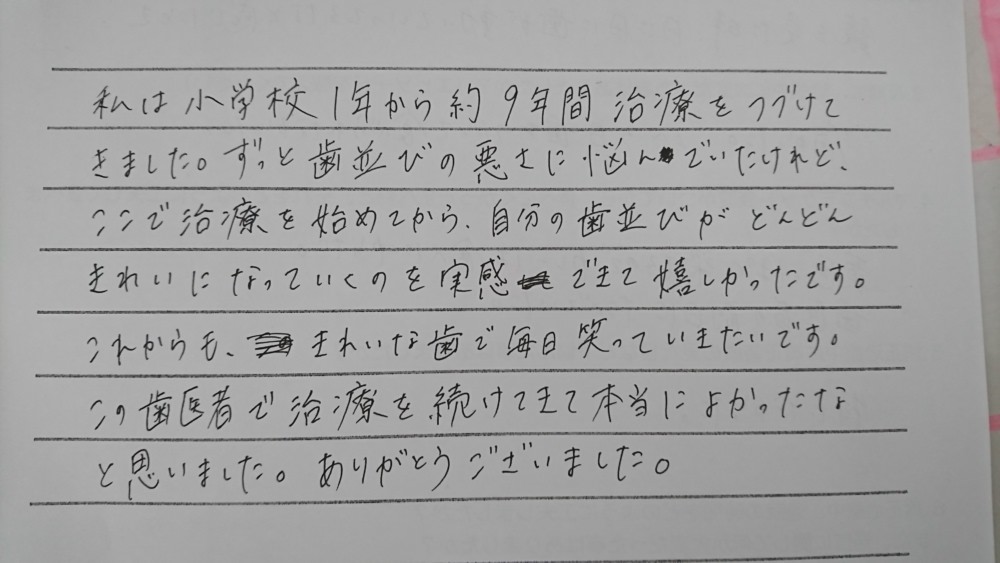 私は小学校1年から約9年間治療をつづけて
きました。ずっと歯並びの悪さに悩んでいたけれど、
ここで治療を始めてから、自分の歯並びがどんどん
きれいになっていくのを実感できて嬉しかったです。
これからも、きれいな歯で毎日笑っていきたいです。
この歯医者で治療を続けてきて本当によかったな
と思いました。ありがとうございました。